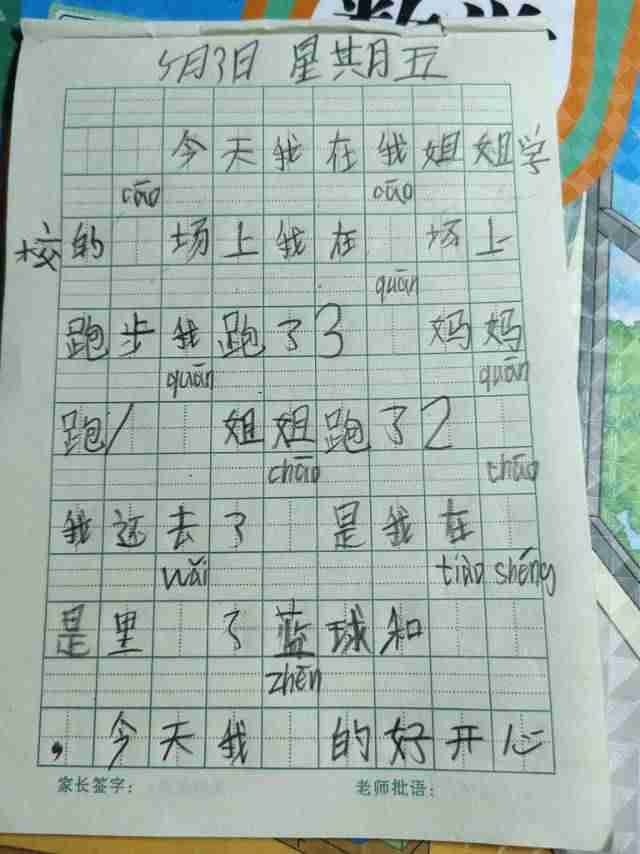 5月3日 星期五
今天我在我姐姐学
cāo cāo
校的 场上我在 场上
quān
跑步我跑了3 妈妈
quān quān
跑1 姐姐跑了2
chāo chāo
我还去了 是我在
wǎi tiào shéng
是里 了蓝球和
zhēn
，今天我 的好开心
家长签字： 老师批语：